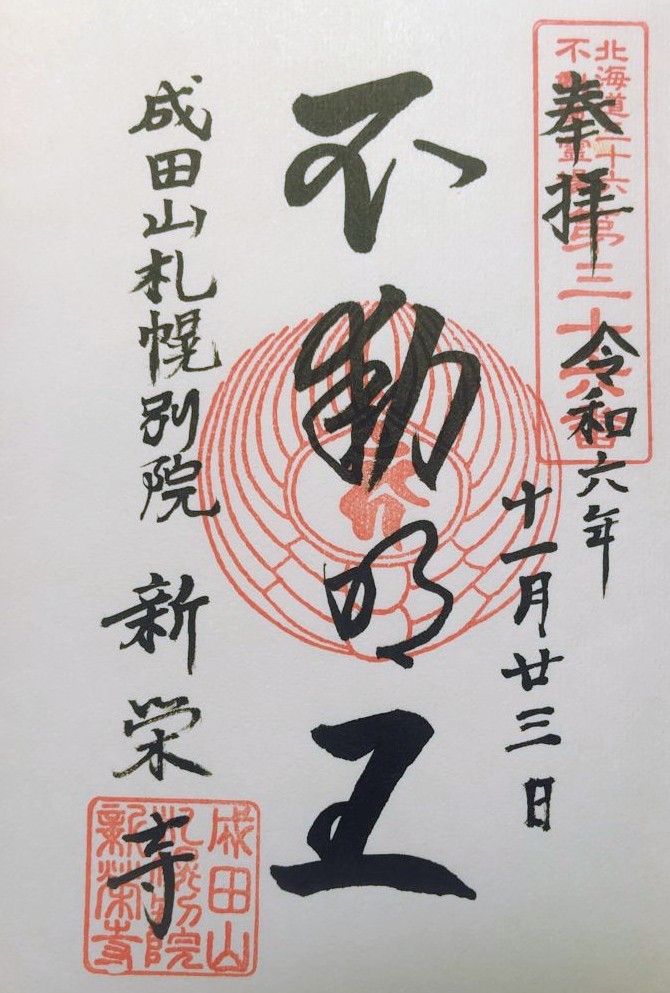 奉拝
令和六年
十一月廿三日
不動明王
成田山札幌別院
新栄寺
北海道三十六
不動尊霊場
第三十六番
成田山
札幌別院
新榮寺